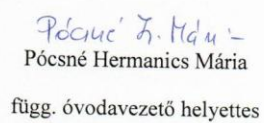 Pócsné H. Mári
Pócsné Hermanics Mária
függ. óvodavezető helyettes